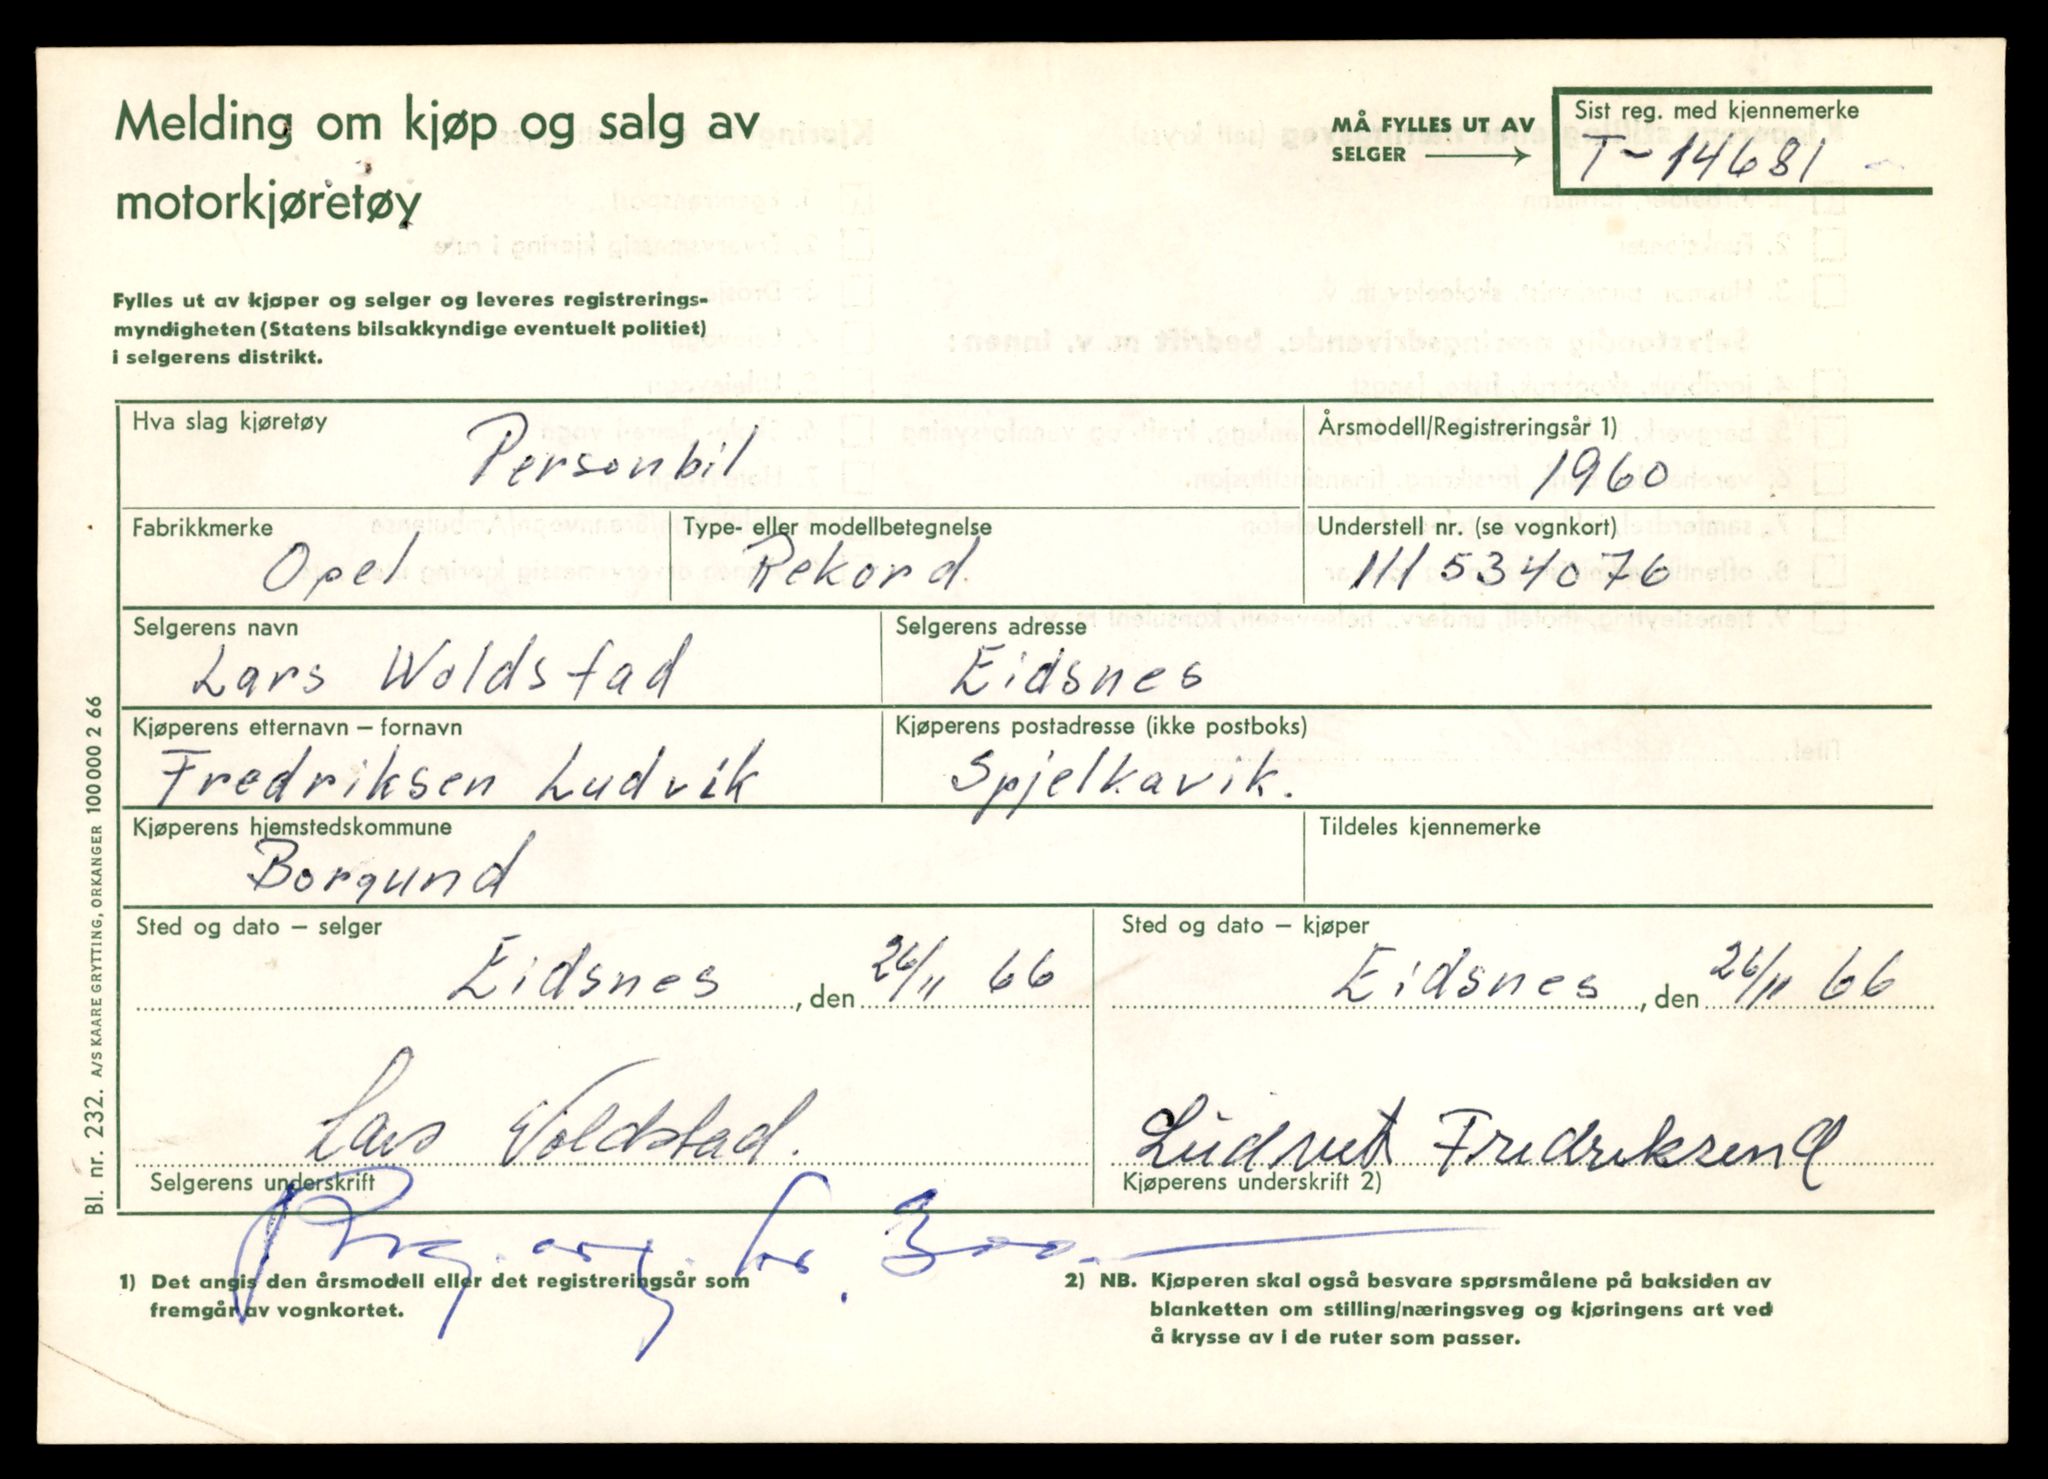 Melding om kjøp og salg av
motorkjøretøy
MÅ FYLLES UT AV
SELGER
Sist reg. med kjennemerke
T-14681
Fylles ut av kjøper og selger og leveres registrerings-
myndigheten (Statens bilsakkyndige eventuelt politiet)
i selgerens distrikt.
Hva slag kjøretøy
Personbil
Årsmodell/Registreringsår 1)
1960
Fabrikkmerke
Opel
Type- eller modellbetegnelse
Rekord
Understell nr. (se vognkort)
111534076
Selgerens navn
Lars Woldstad
Selgerens adresse
Eidsnes
Kjøperens etternavn – fornavn
Fredriksen Ludvik
Kjøperens postadresse (ikke postboks)
Spjelkavik.
Kjøperens hjemstedskommune
Borgund
Tildeles kjennemerke
Sted og dato – selger
Eidsnes, den 26/11 66
Sted og dato – kjøper
Eidsnes, den 26/11 66
Lars Woldstad.
Selgerens underskrift
Fredriksen
Kjøperens underskrift 2)
kr. 300.
1) Det angis den årsmodell eller det registreringsår som
fremgår av vognkortet.
2) NB. Kjøperen skal også besvare spørsmålene på baksiden av
blanketten om stilling/næringsveg og kjøringens art ved
å krysse av i de ruter som passer.
Bl. nr. 232. A/S KAARE GRYTTING, ORKANGER 100 000 2 66